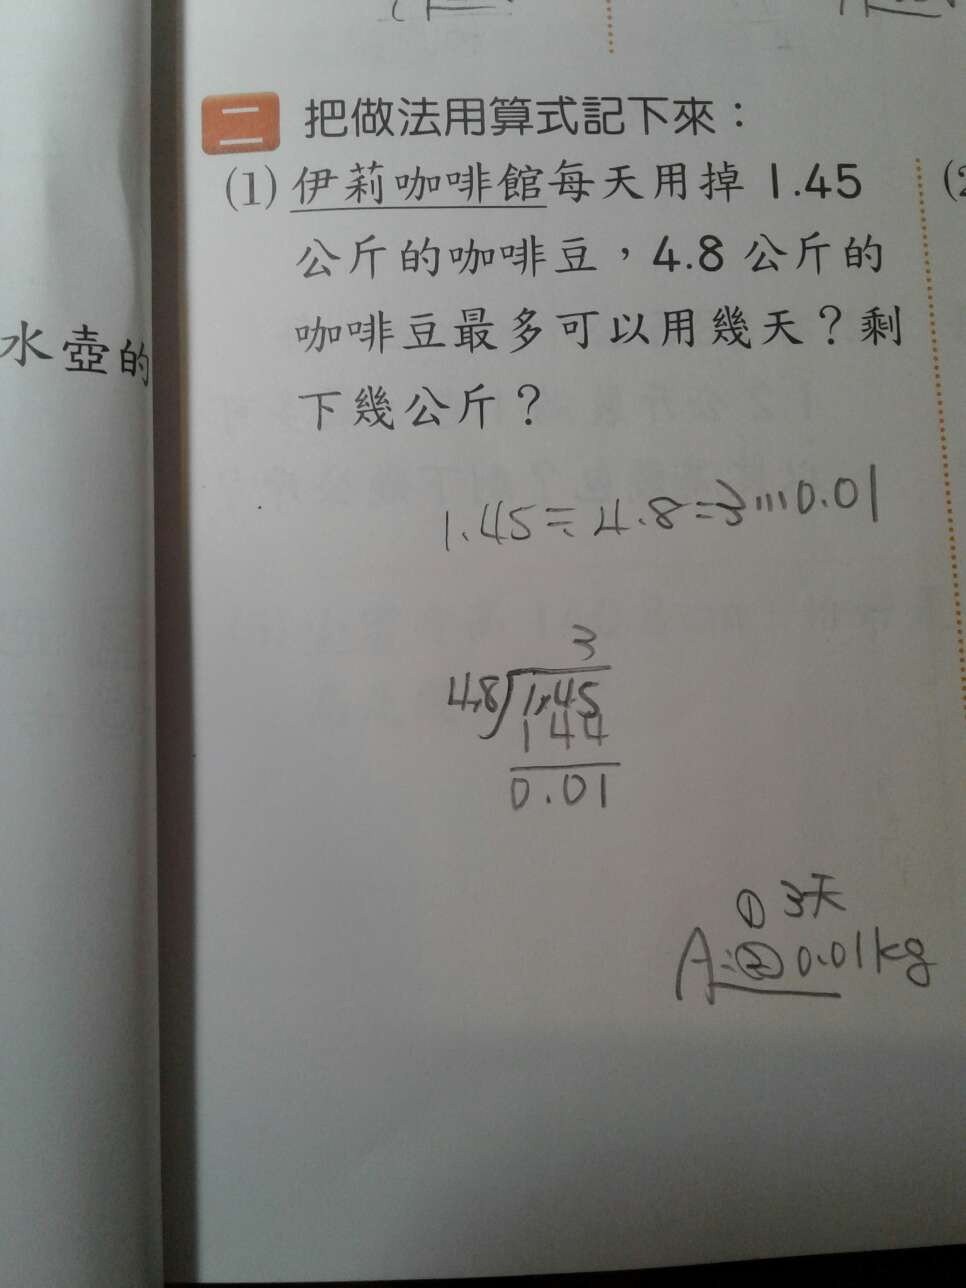 二 把做法用算式記下來：
(1) 伊莉咖啡館每天用掉 1.45
公斤的咖啡豆，4.8 公斤的
水壺的
咖啡豆最多可以用幾天？剩
下幾公斤？
1.45÷4.8=3…0.01
3
4.8 1.45
144
0.01
① 3天
A:② 0.01kg